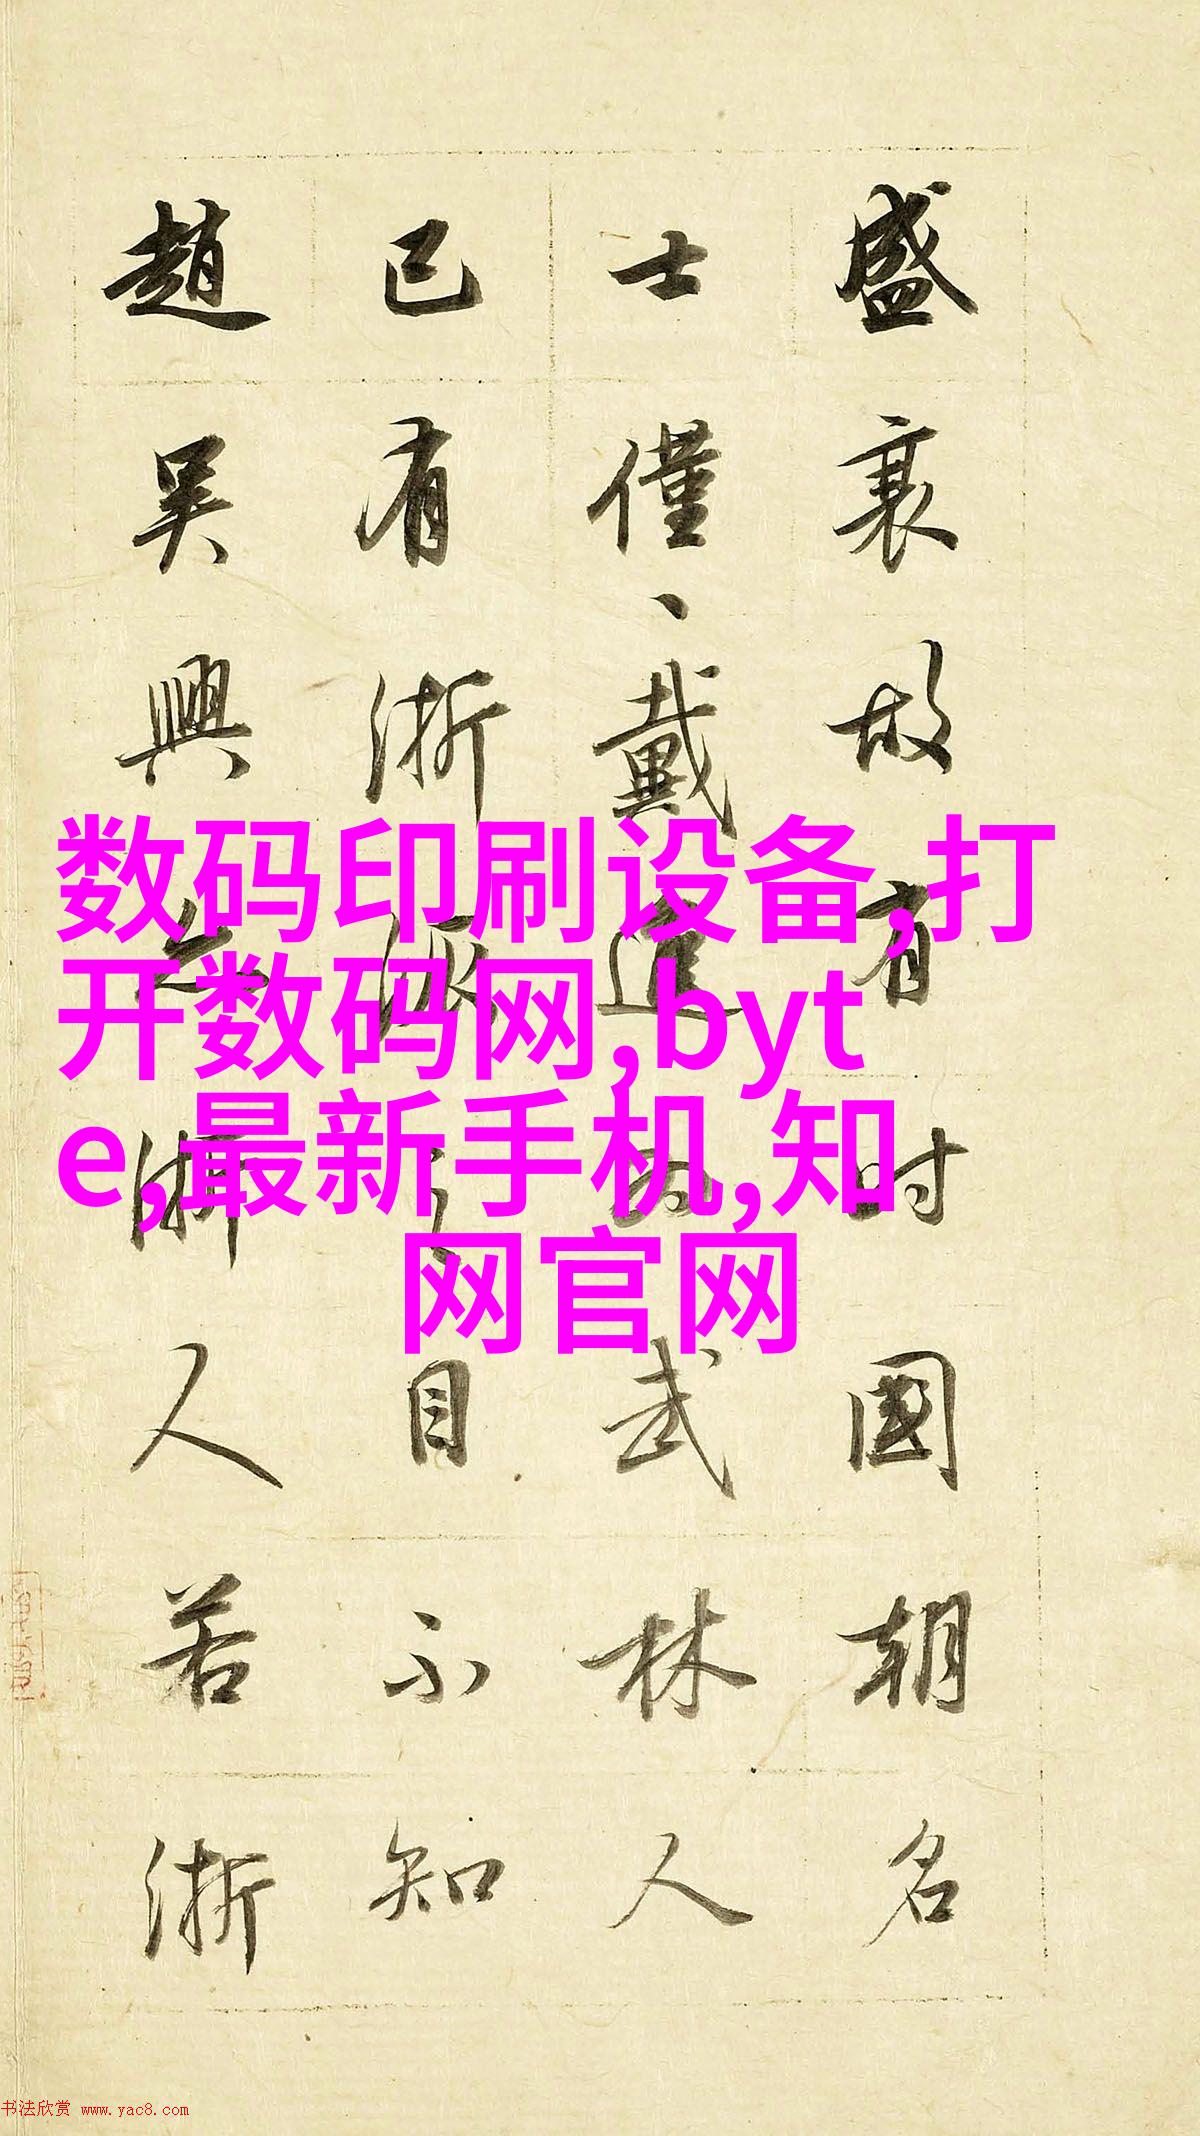 盛衰故有时國朝名
士僅、戴進為武林人
已有浙派之目不知
趙吳興浙人若浙
数码印刷设备,打
开数码网,byt
e,最新手机,知
网官网
书法欣赏 www.yac8.com